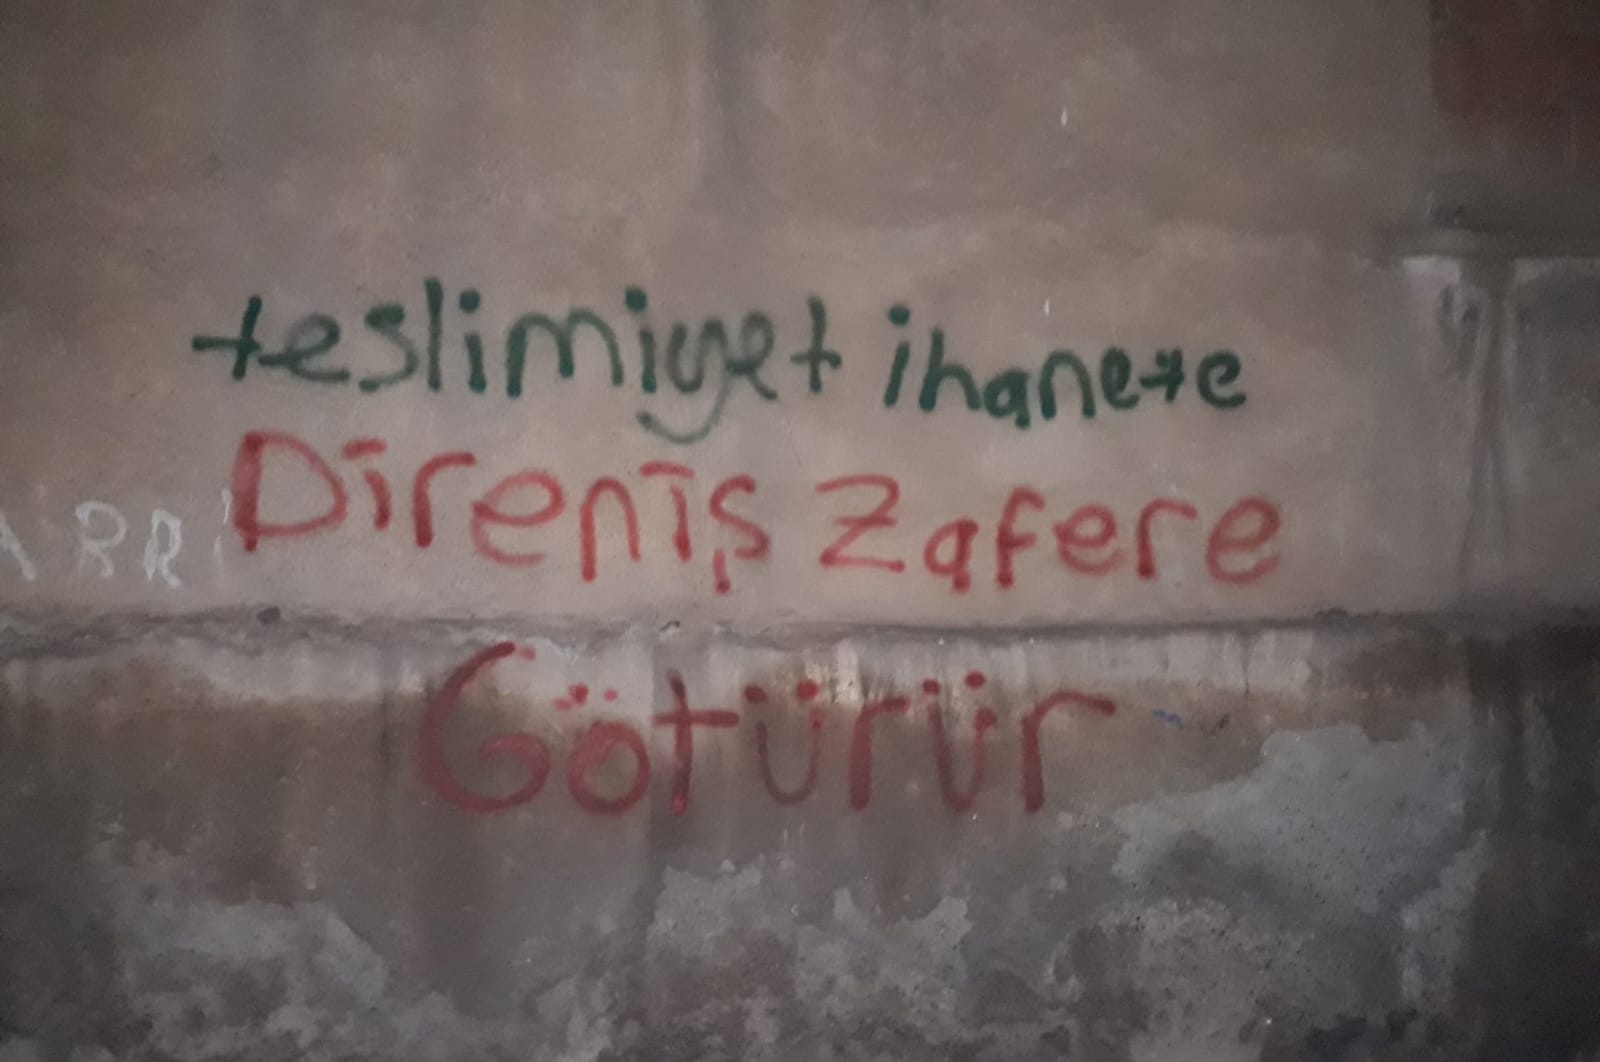 teslimiyet ihanete
Direniş Zafere
Götürür